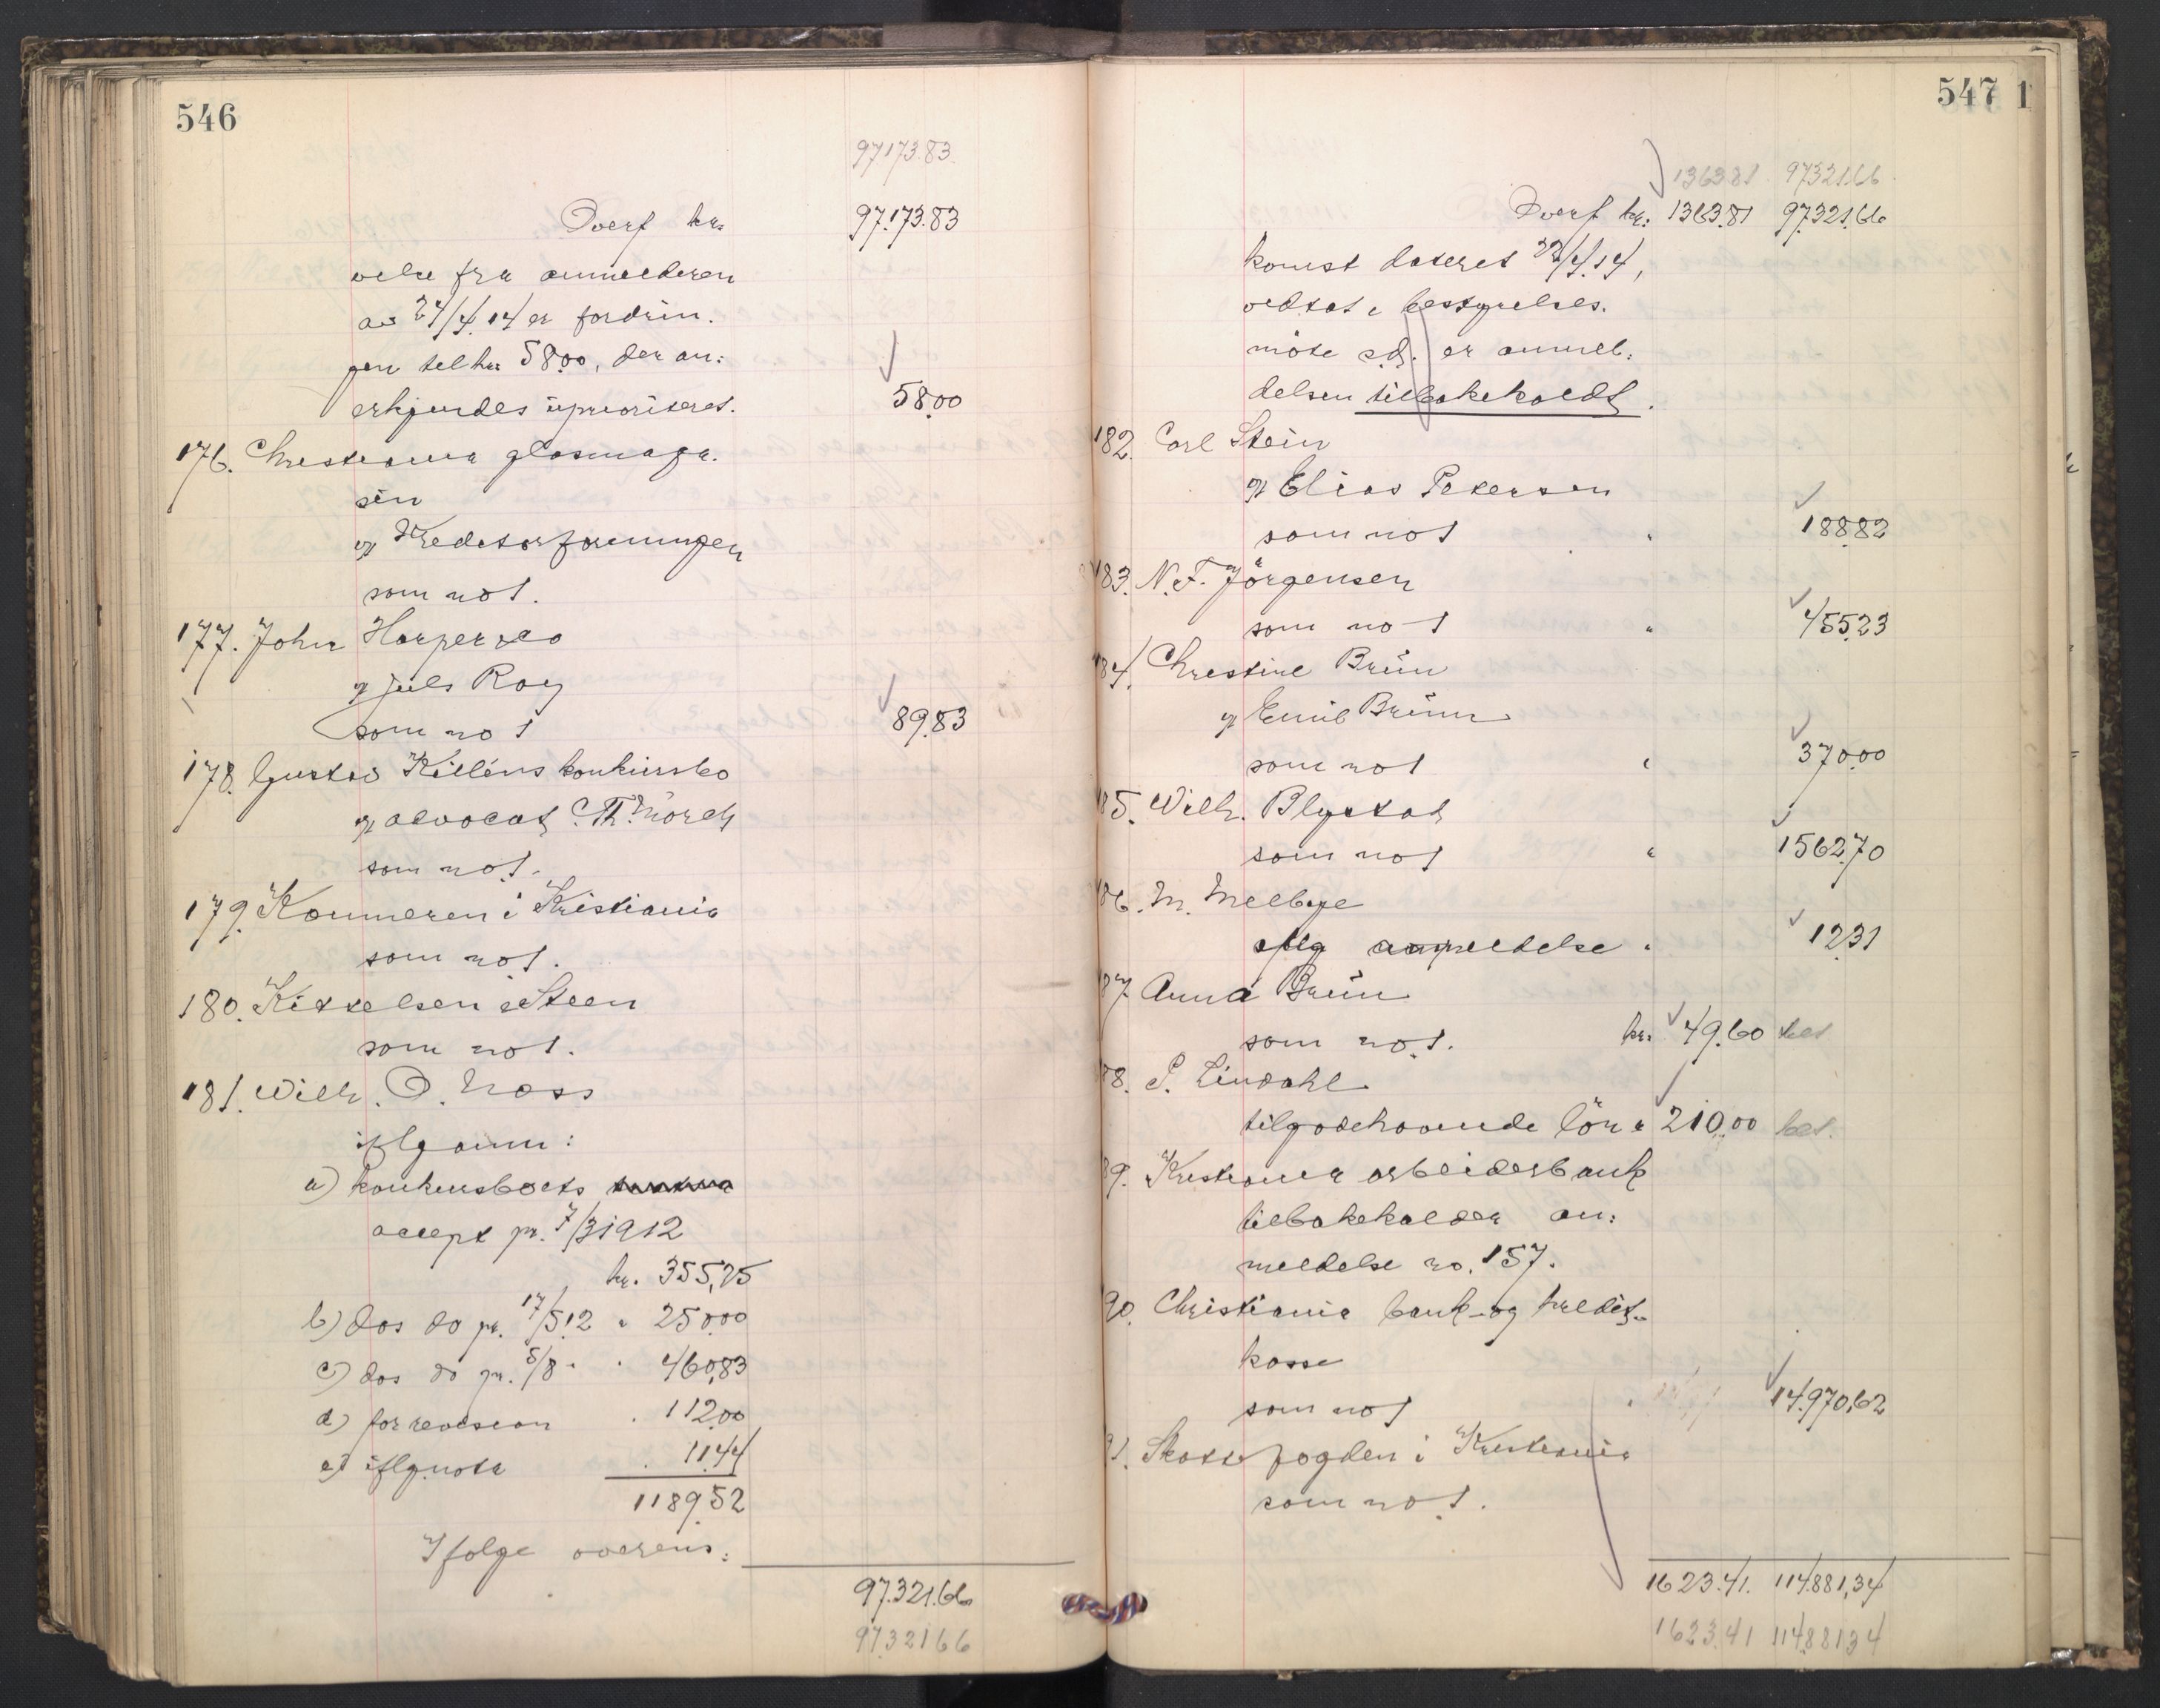 546
97173.83
Overf kr. 97.173.83
velse fra anmelderen
av 24/4.14 er fordrin-
gen tilhr 58.00, der an-
erkjendes uprioriteret. 58.00
176. Christiania glasmaga-
sin
v/ Kreditorforeningen
som not.
177. John Harper &co
v/ Juls Roy
som not 89.83
178. Gustav Killéns konkursbo
v/ advocat C. Th. Mörch
som not.
179. Kæmneren i Kristiania
som not.
180. Kittelsen & Steen
som not.
181. Wilh. O. Nass
iflg anm:
a) konkursboets
accept pr. 7/3 1912
kr. 355,25
b) dos do pr. 17/5 12 " 250.00
c) dos do pr. 5/8 " " 460,83
d) for revision " 112.00
e) iflg. nota " 11.44
1189.52
Ifølge overens-
97.321.66
97.321 66
547 1
1363.81 97321.66
Overf kr. 1363.81 97.321,66
komst dateret 22/4.14,
vedtat i bestyrelses-
möte s.d. er anmel-
delsen tilbakekaldt.
182. Carl Stein
v/ Elias Petersen
som not " 188.82
183. N. F. Jörgensen
som not " 455.23
184. Christine Brün
v/ Emil Brünn
som not " 370.00
185. Wilh. Blystad
som not " 1562.70
186. M. Melbye
iflg anmeldelse " 12.31
187. Anna Brün
som not. kr. 49.60 bet
188. P. Lindahl
tilgodehavende lön " 210.00 bet.
189. Kristiania arbeiderbank
tilbakekalder an-
meldelse no. 157.
190. Christiania bank- og kredit-
kasse
som not " 14.970,62
191. Skattefogden i Kristiania
som not.
1623.41. 114.881,34
1623.41 114.881 34